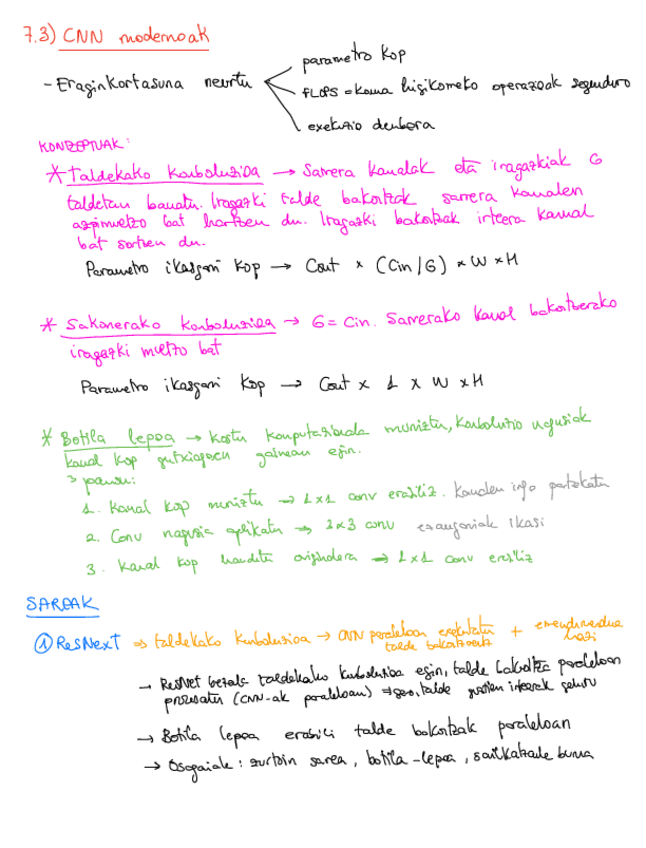 7.3) CNN modernoak
parametro kop
- Eraginkortasuna neurtu
FLOPS = koma higikorreko operazioak segunduro
exekuzio denbora
KONTZEPTUAK:
* Taldekako konboluzioa → Sarrera kanalak eta iragazkiak G
taldetan banatu. Iragazki talde bakoitzak sarrera kanalen
azpimultzo bat hartzen du. Iragazki bakoitzak irteera kanal
bat sortzen du.
Parametro ikasgarri kop → Cout × (Cin/G) × W × H
* Sakonerako konboluzioa → G = Cin. Sarrerako kanal bakoitzerako
iragazki multzo bat
Parametro ikasgarri kop → Cout × 1 × W × H
* Botila lepoa → kostu konputazionala murriztu, konboluzio nagusiak
kanal kop gutxiagoen gainean egin.
3 pausu:
1. Kanal kop murriztu → 1x1 conv erabiliz. Kanalen info partekatu
2. Conv nagusia aplikatu → 3x3 conv ezaugarriak ikasi
3. Kanal kop handitu → 1x1 conv erabiliz
SAREAK
① ResNext ⇒ taldekako konboluzioa → CNN paraleloan exekutatu + errendimendua
talde bakoitzeko hazi
→ ResNet bezala taldekako konboluzioa egin, talde bakoitza paraleloan
prozesatu (CNN-ak paraleloan) ⇒ gero, talde guztien irteerak
→ Botila lepoa erabili talde bakoitzak paraleloan
→ Osagaiak: zurtoin sarea, botila-lepoa, sailkatzaile burua